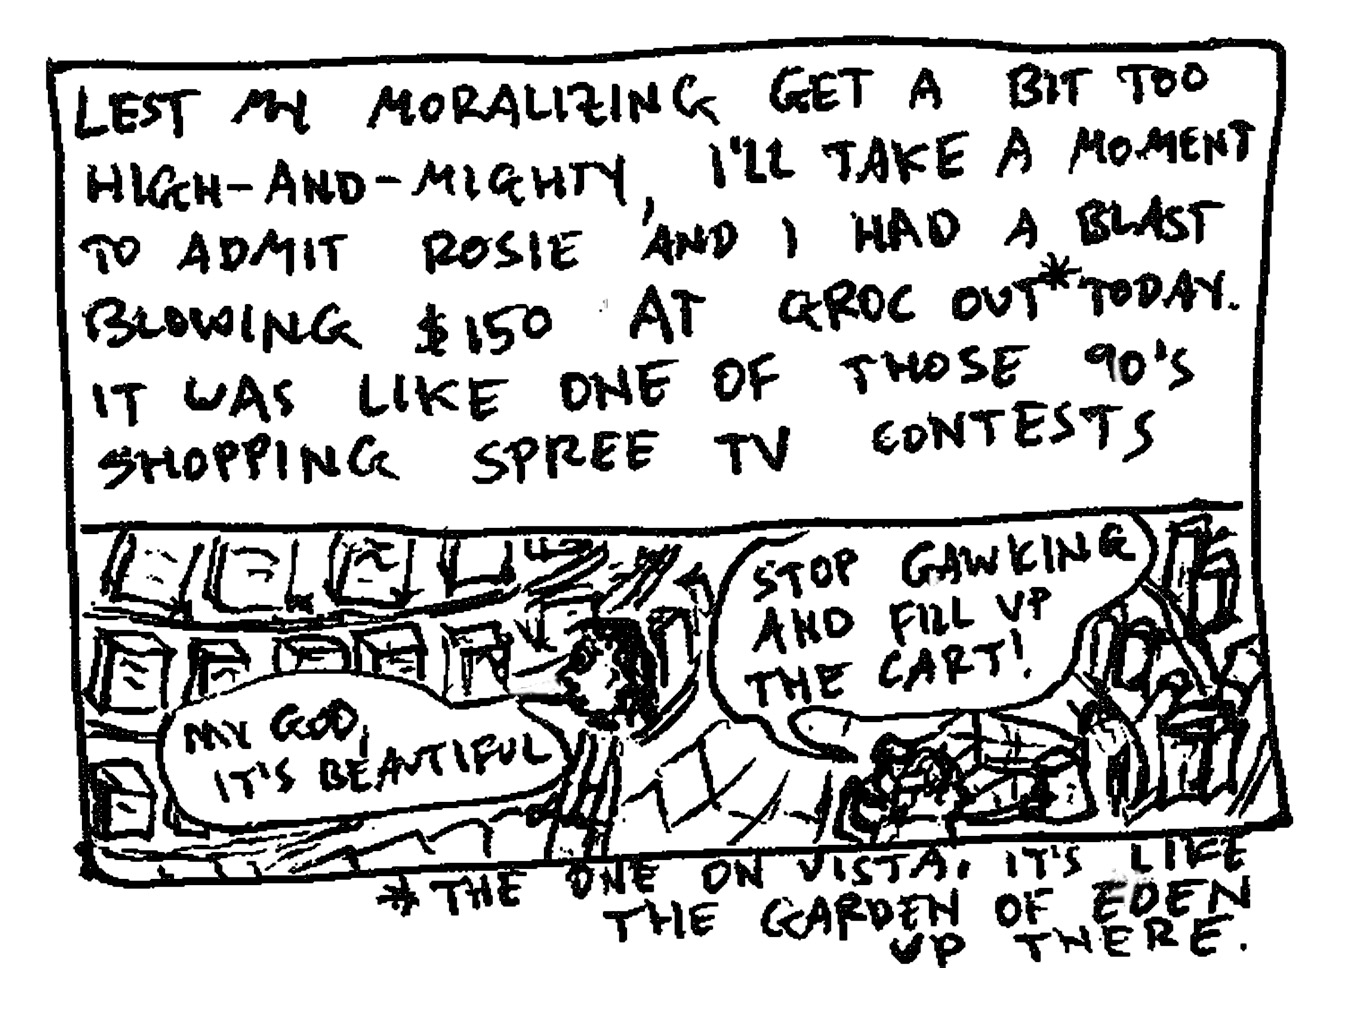 LEST MY MORALIZING GET A BIT TOO
HIGH-AND-MIGHTY, I'LL TAKE A MOMENT
TO ADMIT ROSIE AND I HAD A BLAST
BLOWING $150 AT GROC OUT* TODAY.
IT WAS LIKE ONE OF THOSE 90'S
SHOPPING SPREE TV CONTESTS
MY GOD,
IT'S BEAUTIFUL
STOP GAWKING
AND FILL UP
THE CART!
* THE ONE ON VISTA. IT'S LIKE
THE GARDEN OF EDEN
UP THERE.